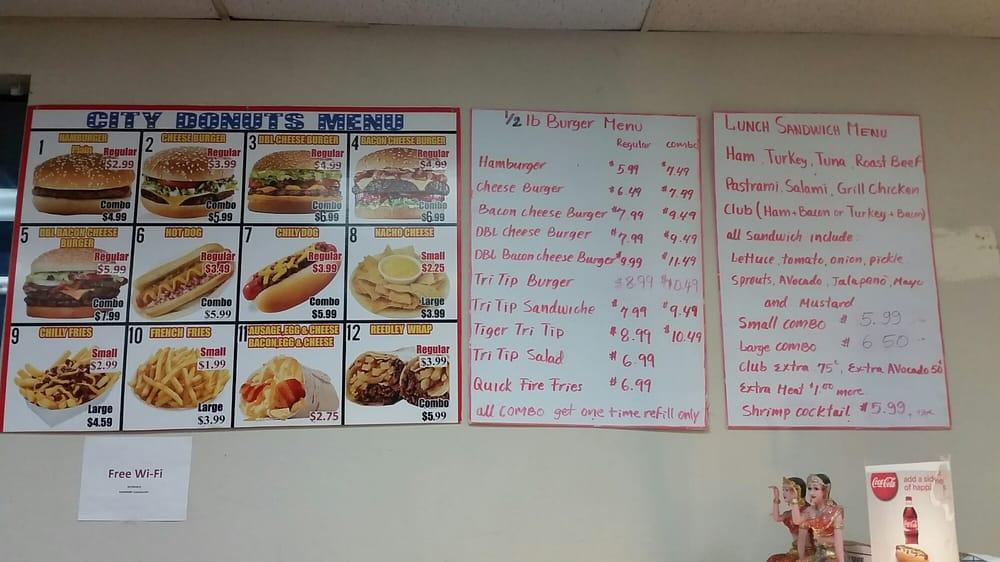 CITY DONUTS MENU
1 HAMBURGER
Regular
$2.99
Combo
$4.99
2 CHEESE BURGER
Regular
$3.99
Combo
$5.99
3 DBL CHEESE BURGER
Regular
$4.99
Combo
$6.99
4 BACON CHEESE BURGER
Regular
$4.99
Combo
$6.99
5 DBL BACON CHEESE
BURGER
Regular
$5.99
Combo
$7.99
6 HOT DOG
Regular
$3.49
Combo
$5.99
7 CHILY DOG
Regular
$3.99
Combo
$5.99
8 NACHO CHEESE
Small
$2.25
Large
$3.99
9 CHILLY FRIES
Small
$2.99
Large
$4.59
10 FRENCH FRIES
Small
$1.99
Large
$3.99
11 AUSAGE, EGG & CHEESE
BACON, EGG & CHEESE
$2.75
12 REEDLEY WRAP
Regular
$3.99
Combo
$5.99
Free Wi-Fi
1/2 lb Burger Menu
Regular combo
Hamburger $5.99 $7.49
Cheese Burger $6.49 $7.99
Bacon cheese Burger $7.99 $9.49
DBL Cheese Burger $7.99 $9.49
DBL Bacon cheese Burger $9.99 $11.49
Tri Tip Burger $8.99 $10.49
Tri Tip Sandwiche $7.99 $9.49
Tiger Tri Tip $8.99 $10.49
Tri Tip Salad $6.99
Quick Fire Fries $6.99
all COMBO get one time refill only
LUNCH SANDWICH MENU
Ham, Turkey, Tuna, Roast Beef
Pastrami, Salami, Grill Chicken
Club (Ham+Bacon or Turkey+Bacon)
all Sandwich include:
Lettuce, tomato, onion, pickle
Sprouts, Avocado, Jalapeno, Mayo
and Mustard
Small COMBO $5.99
Large COMBO $6.50
Club Extra 75¢, Extra Avocado 50¢
Extra Meat $1.00 more
Shrimp cocktail $5.99
Coca-Cola
add a side
of happi